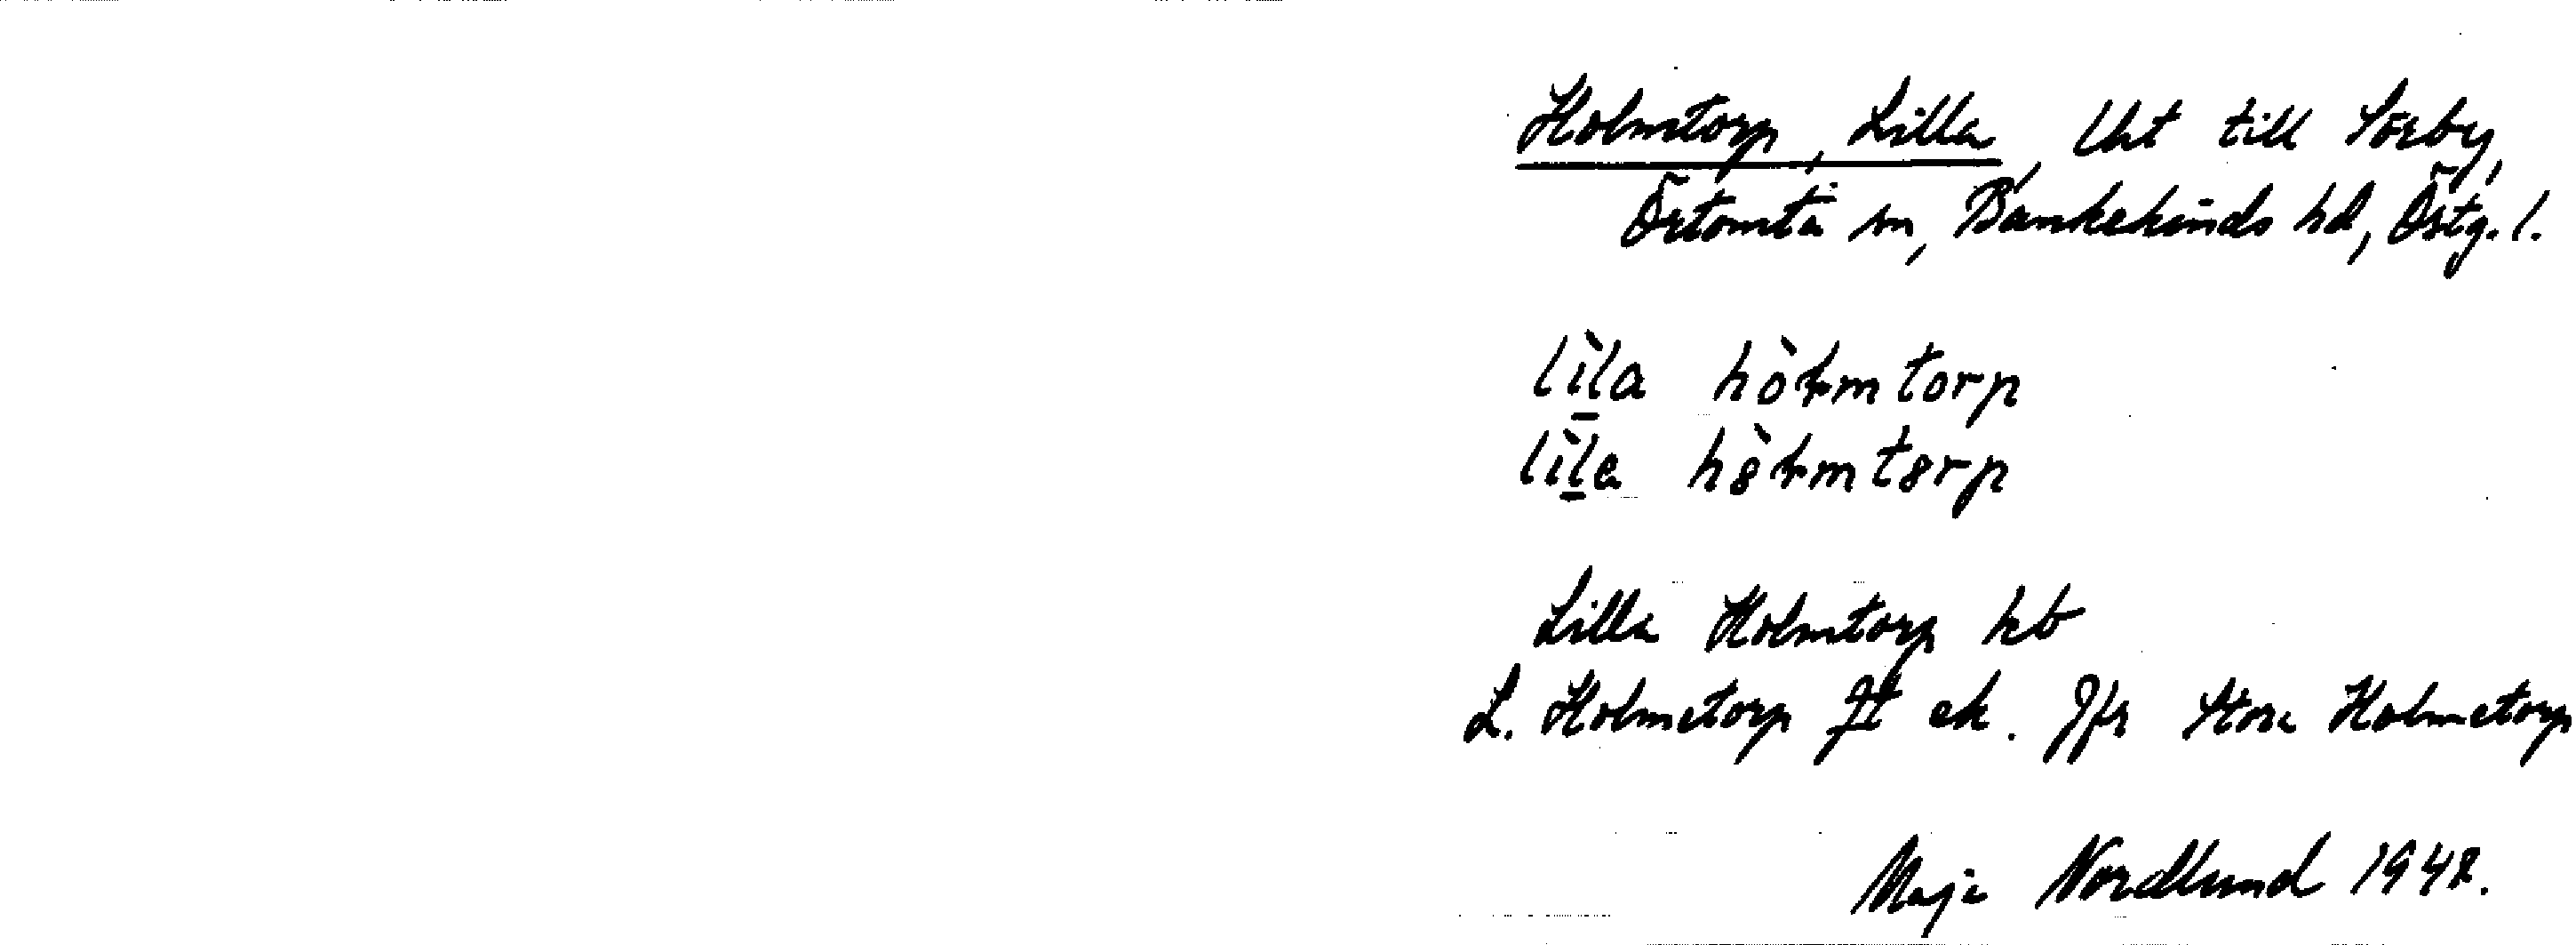 Holmtorp, Lilla, Uht till Sörby,
Örtomta sn, Bankekinds hd, Östg. l.
lìla hòłmtorp
lìla hȍłmt8rp
Lilla Holmtorp hb
L. Holmetorp Jt ek. Jfr Stora Holmetorp
Maja Nordlund 1942.